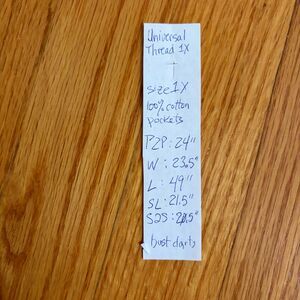 Universal
Thread 1X
size 1X
100% cotton
pockets
P2P: 24"
W: 23.5"
L: 49"
SL: 21.5"
bust darts